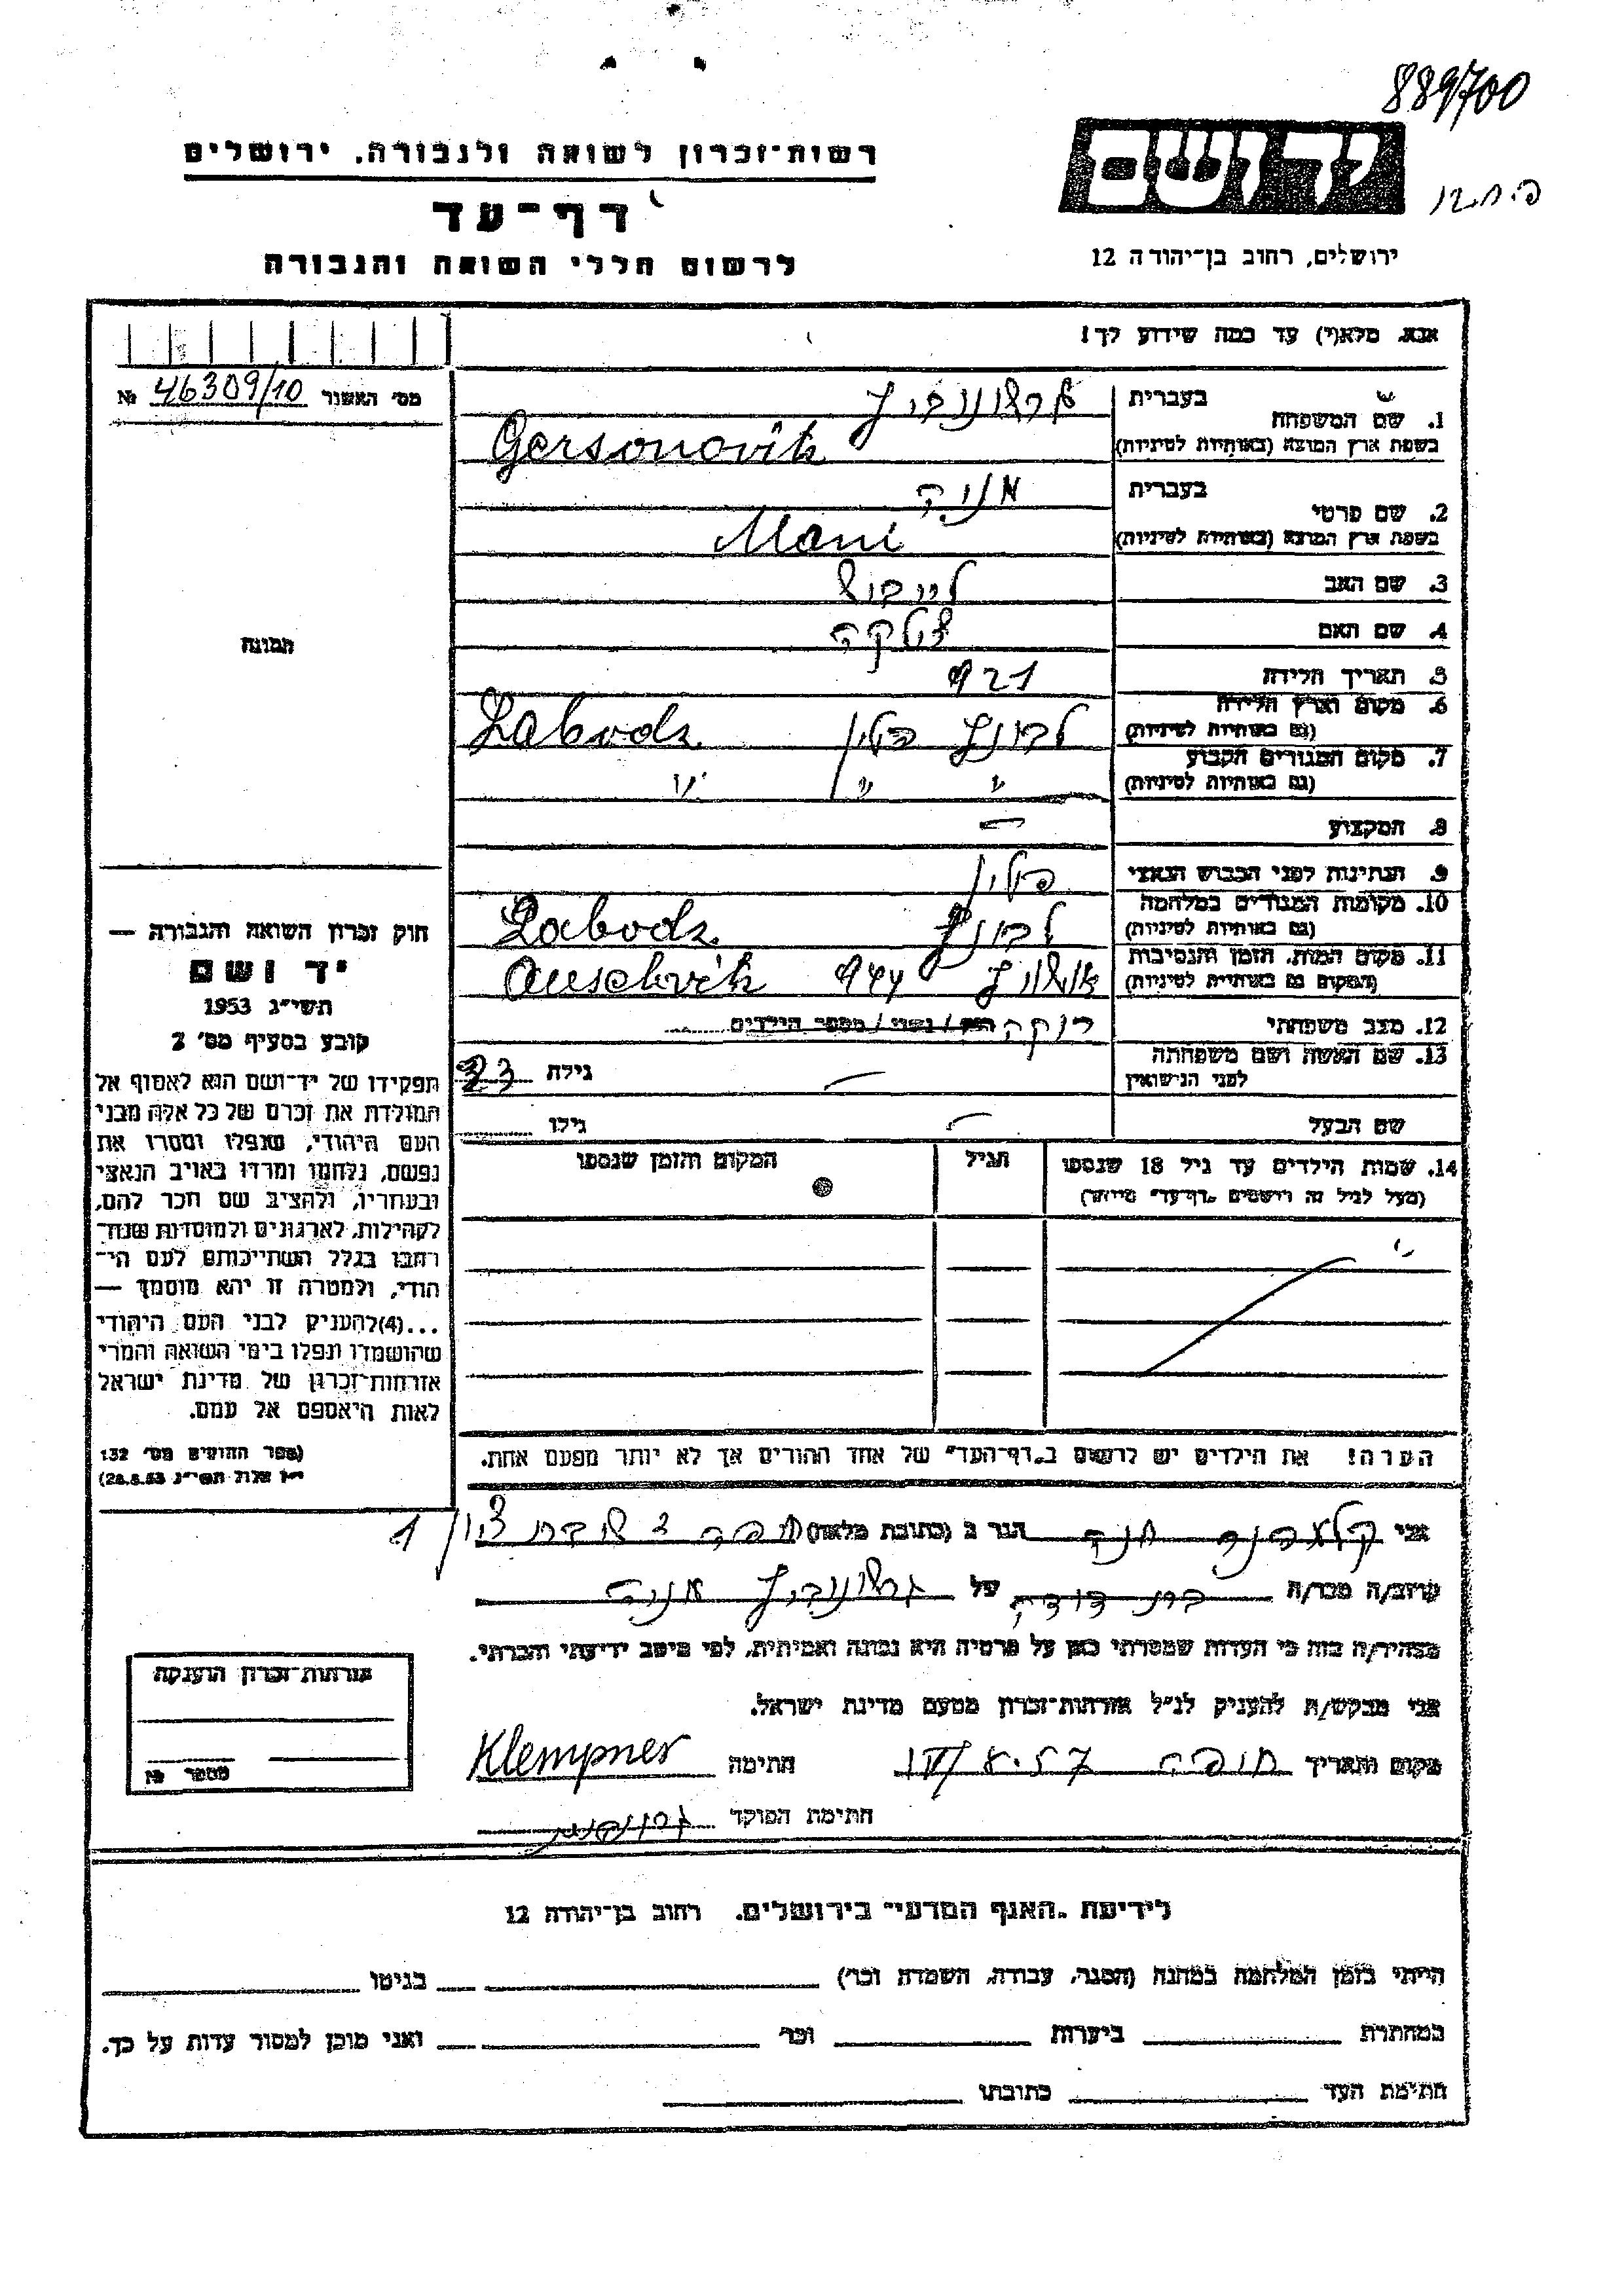 889700
רשות־זכרון לשואה ולגבורה, ירושלים
יד ושם
דף־עד
ירושלים, רחוב בן־יהודה 12
לרשום חללי השואה והגבורה
אנא, מלא(י) עד כמה שידוע לך!
מס׳ האשור № 46309/10
בעברית גרשונוביץ
1. שם המשפחה
בשפת ארץ המוצא (באותיות לטיניות) Gersonovitz
בעברית מניה
2. שם פרטי
בשפת ארץ המוצא (באותיות לטיניות) Mani
3. שם האב לייבוש
4. שם האם
5. תאריך הלידה 921
6. מקום וארץ הלידה
(גם באותיות לטיניות) לבונץ פולין Labodz
7. מקום המגורים הקבוע
(גם באותיות לטיניות) " " "
8. המקצוע –
9. הנתינות לפני הכבוש הנאצי פולין
10. מקומות המגורים במלחמה
(גם באותיות לטיניות) Labodz
11. מקום המות, הזמן והנסיבות
(המקום גם באותיות לטיניות) אושויץ 944 Auschvitz
12. מצב משפחתי רוקה רווק / נשוי / מספר הילדים
13. שם האשה ושם משפחתה
לפני הנישואין – גילה 23
שם הבעל – גילו
14. שמות הילדים עד גיל 18 שנספו
(מעל לגיל זה רושמים „דף־עד" מיוחד)
הגיל
המקום והזמן שנספו
הערה! את הילדים יש לרשום ב„דף־העד" של אחד ההורים אך לא יותר מפעם אחת.
תמונה
חוק זכרון השואה והגבורה —
יד ושם
תשי״ג 1953
קובע בסעיף מס׳ 2
תפקידו של יד־ושם הוא לאסוף אל
המולדת את זכרם של כל אלה מבני
העם היהודי, שנפלו ומסרו את
נפשם, נלחמו ומרדו באויב הנאצי
ובעוזריו, ולהציב שם וזכר להם,
לקהילות, לארגונים ולמוסדות שנח־
רבו בגלל השתייכותם לעם הי־
הודי, ולמטרה זו יהא מוסמך —
...(4) להעניק לבני העם היהודי
שהושמדו ונפלו בימי השואה והמרי
אזרחות־זכרון של מדינת ישראל
לאות היאספם אל עמם.
(ספר החוקים מס׳ 132
י״ז אלול תשי״ג 28.8.53)
אני קלמפנר חנה הגר ב (כתובת מלאה) חיפה
קרוב/ה מכר/ה בת דודה של גרשונוביץ מניה
מצהיר/ה בזה כי העדות שמסרתי כאן על פרטיה היא נכונה ואמיתית, לפי מיטב ידיעתי והכרתי.
אני מבקש/ת להעניק לנ״ל אזרחות־זכרון מטעם מדינת ישראל.
מקום ותאריך חיפה חתימה Klempner
חתימת הפוקד
אזרחות־זכרון הוענקה
מספר №
לידיעת „האגף המדעי" בירושלים, רחוב בן־יהודה 12
הייתי בזמן המלחמה במחנה (הסגר, עבודה, השמדה וכו׳) בגיטו
במחתרת ביערות וכו׳ ואני מוכן למסור עדות על כך.
חתימת העד כתובתו